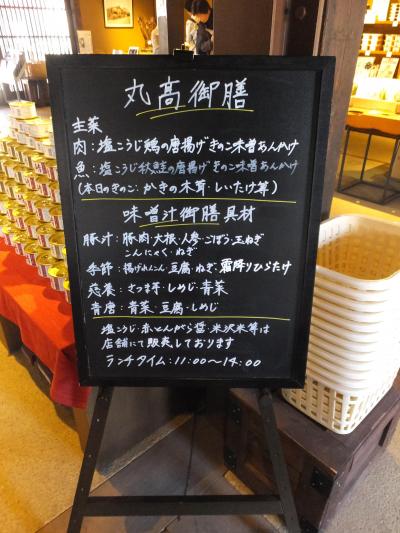 丸高御膳
主菜
肉：塩こうじ鶏の唐揚げきのこ味噌あんかけ
魚：塩こうじ秋鮭の唐揚げきのこ味噌あんかけ
(本日のきのこ：かきの木茸・しいたけ等)
味噌汁御膳具材
豚汁：豚肉・大根・人参・ごぼう・玉ねぎ
こんにゃく・ねぎ
季節：揚げれんこん・豆腐・ねぎ・霜降りひらたけ
慈養：さつま芋・しめじ・青菜
青唐：青菜・豆腐・しめじ
塩こうじ・赤とんがら醤・米沢米等は
店舗にて販売しております
ランチタイム：11:00〜14:00